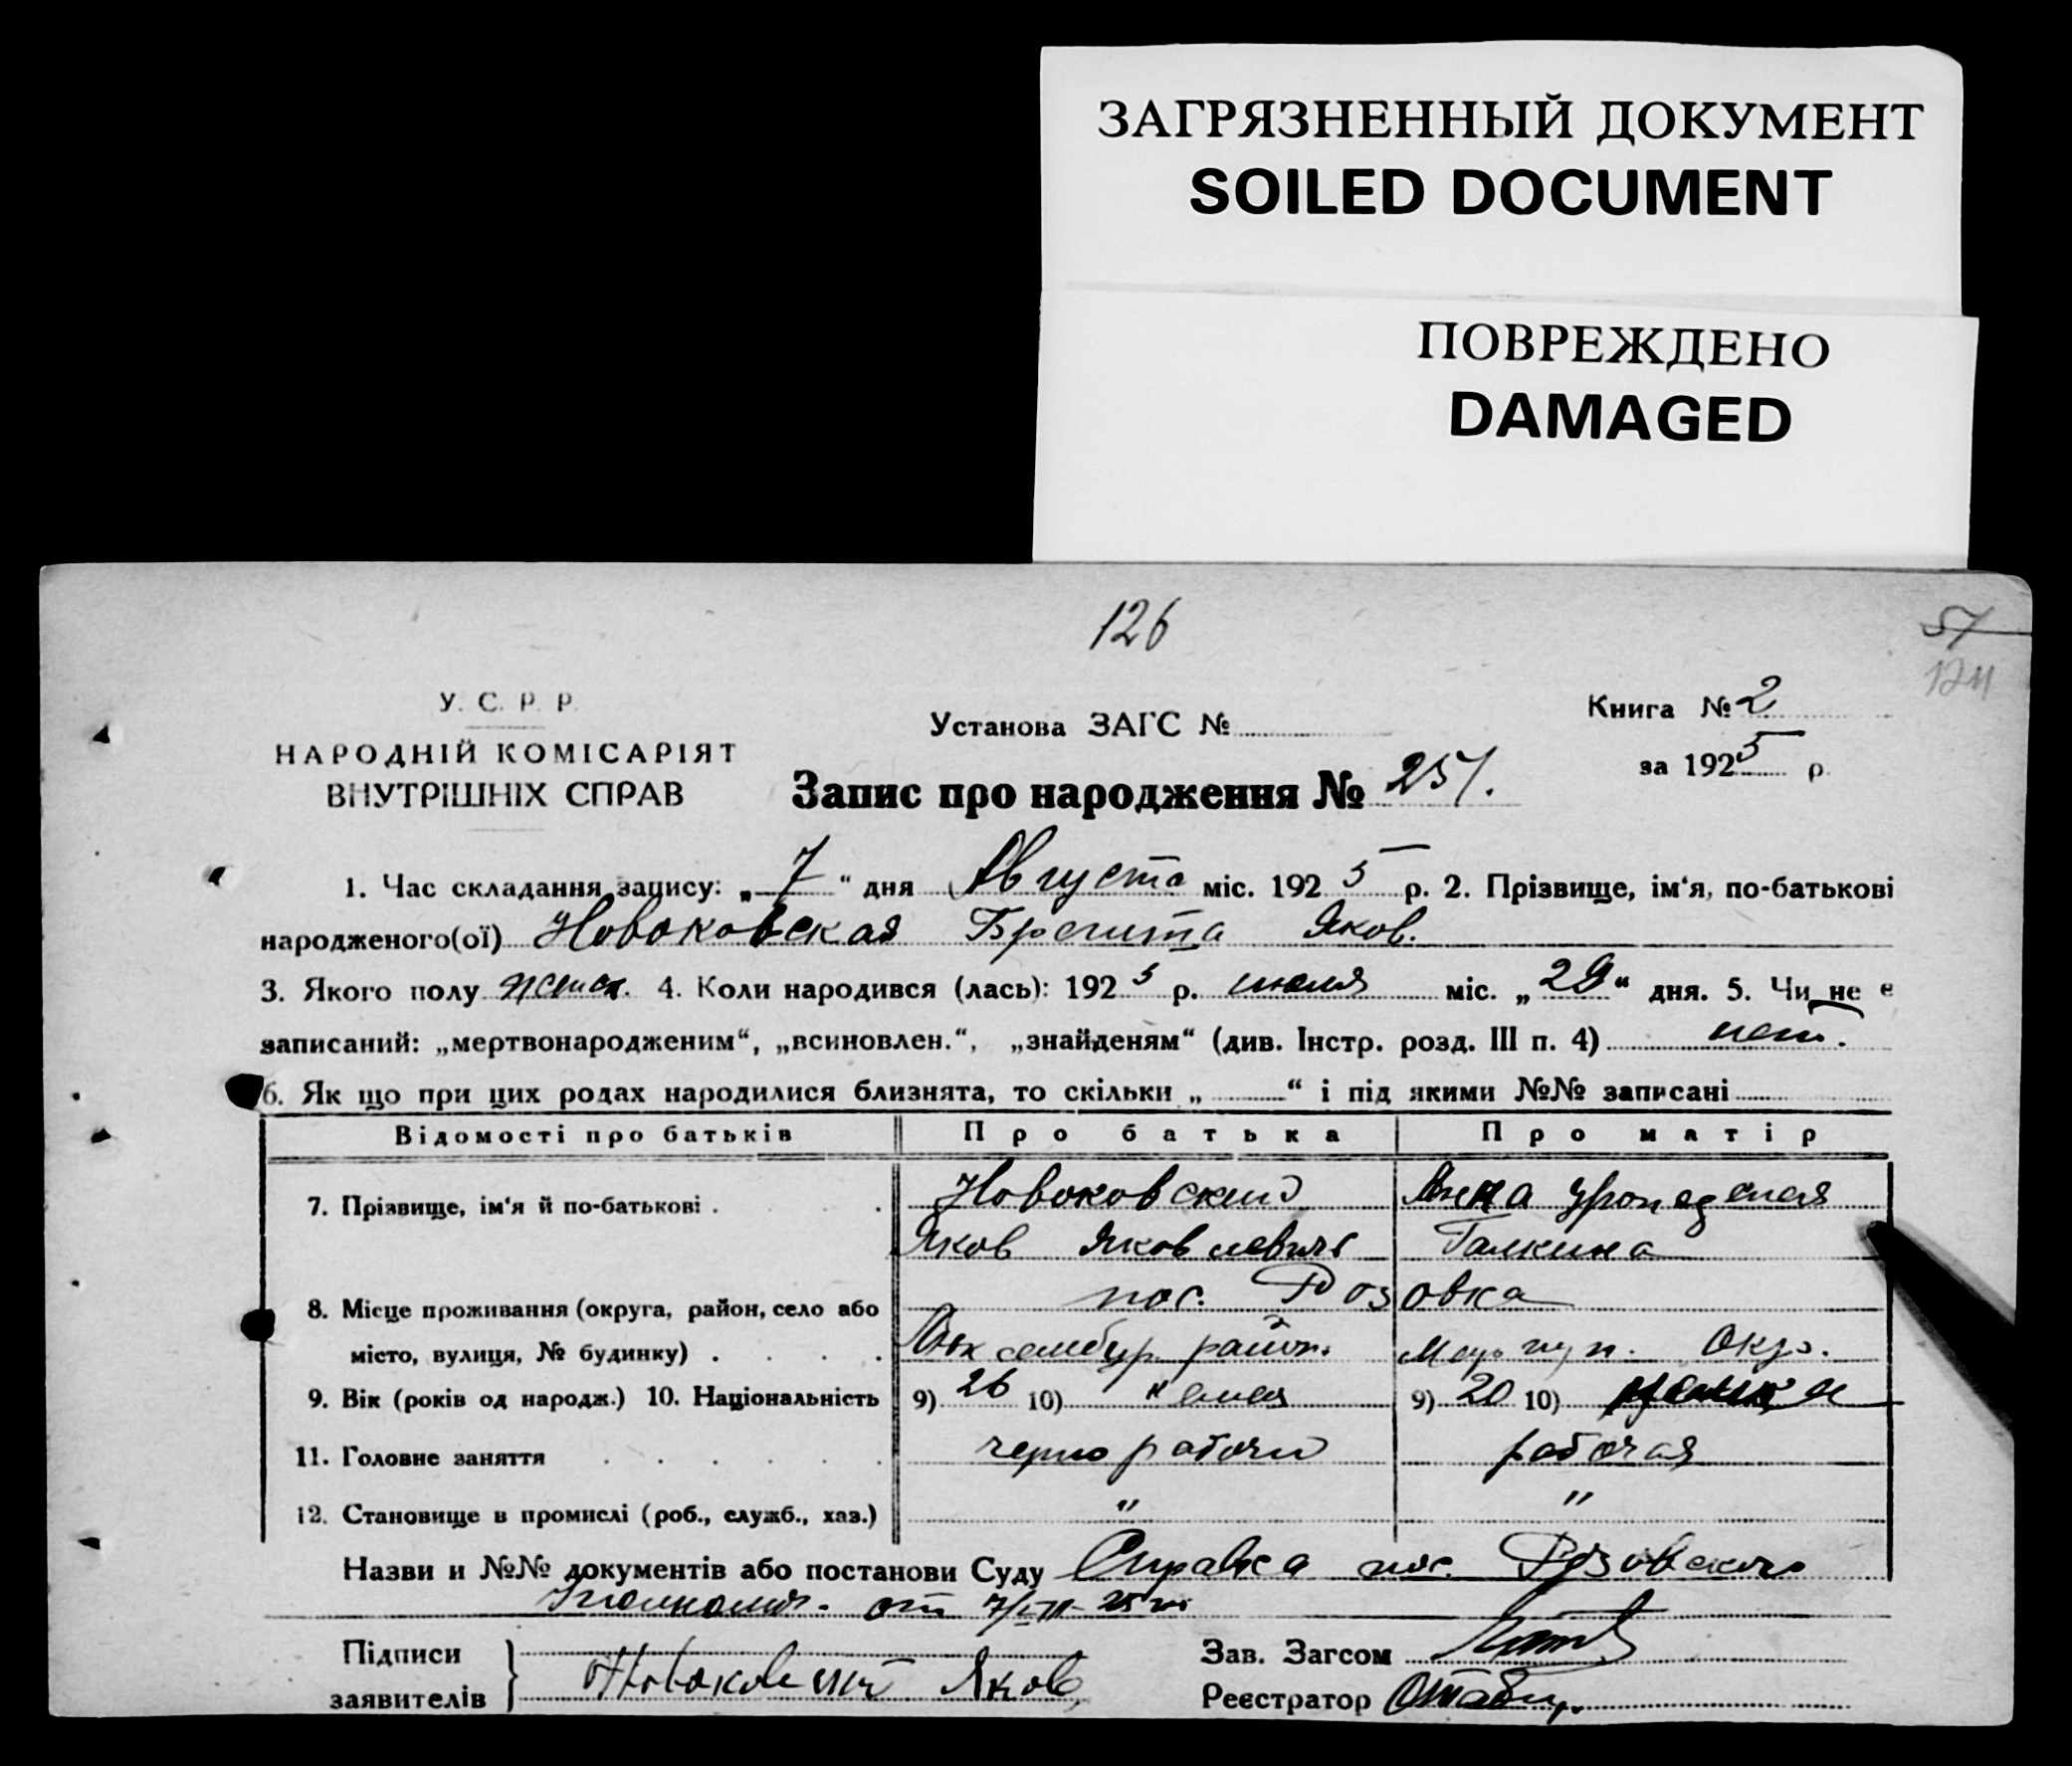 ЗАГРЯЗНЕННЫЙ ДОКУМЕНТ
SOILED DOCUMENT
ПОВРЕЖДЕНО
DAMAGED
126
57
У. С. Р. Р.
Установа ЗАГС №
Книга № 2
НАРОДНІЙ КОМІСАРІЯТ
за 1925 р.
ВНУТРІШНІХ СПРАВ
Запис про народження № 257.
1. Час складання запису: „7“ дня Августа міс. 1925 р. 2. Прізвище, ім‘я, по-батькові
народженого(ої) Новоковская Бригита Яков.
3. Якого полу женск. 4. Коли народився (лась): 1925 р. июля міс. „29“ дня. 5. Чи не є
записаний: „мертвонародженим“, „всиновлен.“, „знайденям“ (див. Інстр. розд. III п. 4) нет.
6. Як що при цих родах народилися близнята, то скільки „ “ і під якими №№ записані
Відомості про батьків Про батька Про матір
7. Прізвище, ім‘я й по-батькові . . Новоковский Анна урожденая
Яков Яковлевич Галкина
8. Місце проживання (округа, район, село або пос. Розовка
місто, вулиця, № будинку) . . . . район. Мариуп. Окр.
9. Вік (років од народж.) 10. Національність 9) 26 10) немец 9) 20 10)
11. Головне заняття . . . . . . чернорабочий рабочая
12. Становище в промислі (роб., служб., хаз.) " "
Назви и №№ документів або постанови Суду Справка пос. Розовского
от 7/VIII-25 г.
Підписи
заявителів Новоковский Яков
Зав. Загсом
Реєстратор